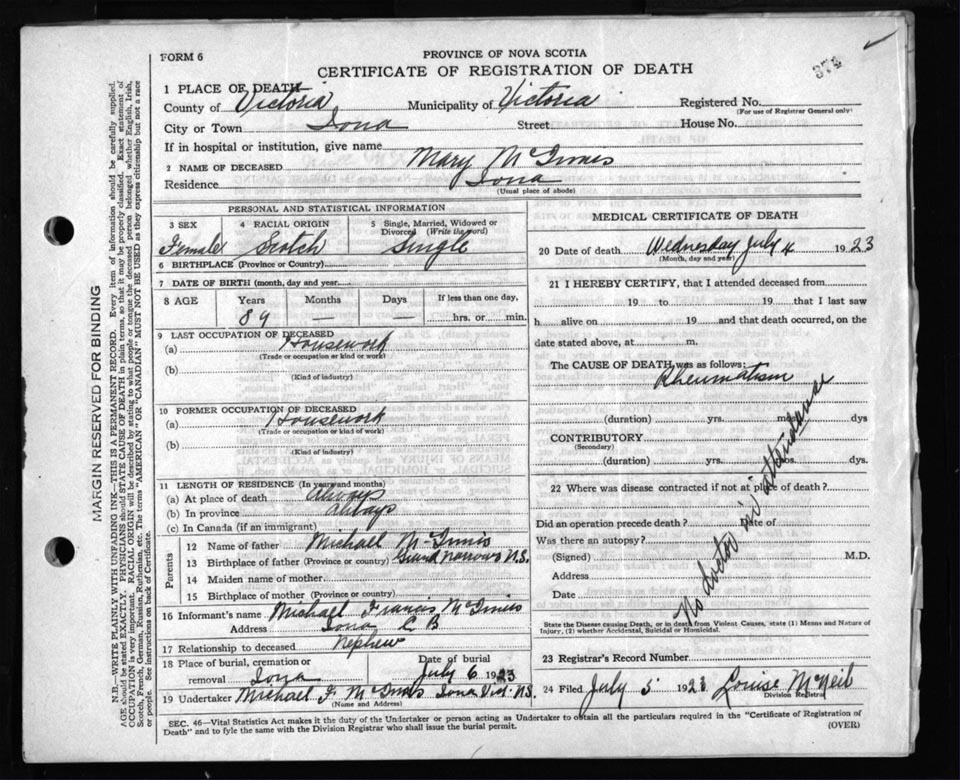 374
FORM 6
PROVINCE OF NOVA SCOTIA
CERTIFICATE OF REGISTRATION OF DEATH
1 PLACE OF DEATH
County of Victoria Municipality of Victoria Registered No.
(For use of Registrar General only)
City or Town Iona Street House No.
If in hospital or institution, give name
2 NAME OF DECEASED Mary McInnis
Residence Iona
(Usual place of abode)
PERSONAL AND STATISTICAL INFORMATION
3 SEX 4 RACIAL ORIGIN 5 Single, Married, Widowed or Divorced (Write the word)
Female Scotch Single
6 BIRTHPLACE (Province or Country)
7 DATE OF BIRTH (month, day and year)
8 AGE Years Months Days If less than one day,
89 — — hrs. or min.
9 LAST OCCUPATION OF DECEASED
(a) Housework
(Trade or occupation or kind or work)
(b)
(Kind of industry)
10 FORMER OCCUPATION OF DECEASED
(a) Housework
(Trade or occupation or kind of work)
(b)
(Kind of industry)
11 LENGTH OF RESIDENCE (In years and months)
(a) At place of death Always
(b) In province always
(c) In Canada (if an immigrant)
Parents
12 Name of father Michael McInnis
13 Birthplace of father (Province or country) Grand Narrows N.S.
14 Maiden name of mother
15 Birthplace of mother (Province or country)
16 Informant's name Michael Francis McInnis
Address Iona C B
17 Relationship to deceased Nephew
18 Place of burial, cremation or removal Iona Date of burial July 6 1923
19 Undertaker Michael F. McInnis Iona Vict. N.S.
(Name and Address)
MEDICAL CERTIFICATE OF DEATH
20 Date of death Wednesday July 4 1923
(Month, day and year)
21 I HEREBY CERTIFY, that I attended deceased from
19 to 19 that I last saw
h alive on 19 and that death occurred, on
date stated above, at m.
The CAUSE OF DEATH was as follows:
Rheumatism
(duration) yrs. mos. dys
CONTRIBUTORY
(Secondary)
(duration) yrs. mos. dys.
22 Where was disease contracted if not at place of death?
Did an operation precede death? Date of
Was there an autopsy?
(Signed) M.D.
Address
Date
No doctor in attendance
State the Disease causing Death, or in death from Violent Causes, state (1) Means and Nature of
Injury, (2) whether Accidental, Suicidal or Homicidal.
23 Registrar's Record Number
24 Filed July 5 1923 Louise McNeil
Division Registrar
SEC. 46—Vital Statistics Act makes it the duty of the Undertaker or person acting as Undertaker to obtain all the particulars required in the "Certificate of Registration of
Death" and to fyle the same with the Division Registrar who shall issue the burial permit.
(OVER)
MARGIN RESERVED FOR BINDING
N.B.—WRITE PLAINLY WITH UNFADING INK—THIS IS A PERMANENT RECORD. Every item of information should be carefully supplied.
AGE should be stated EXACTLY. PHYSICIANS should STATE CAUSE OF DEATH in plain terms, so that it may be properly classified. Exact statement of
OCCUPATION is very important. RACIAL ORIGIN will be described by stating to what people or tongue the deceased person belonged whether English, Irish,
Scotch, French, German, Russian, Ruthenian, etc. The terms "AMERICAN" or "CANADIAN" MUST NOT BE USED as they express citizenship but not a race
or people. See instructions on back of Certificate.